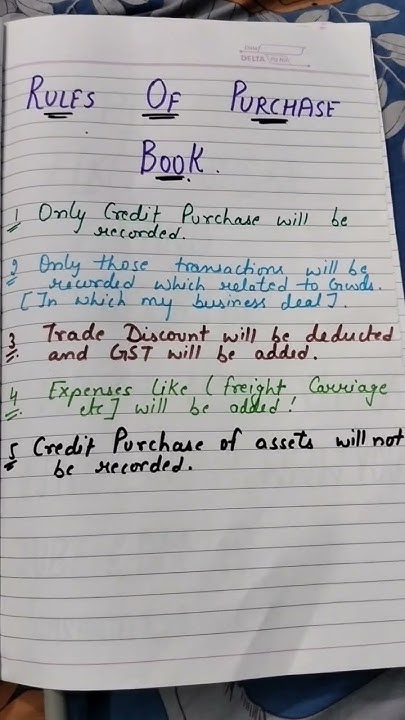 DELTA
RULES OF PURCHASE
BOOK.
1 Only Credit Purchase will be
recorded.
2 Only those transactions will be
recorded which related to Goods.
[In which my business deal].
3 Trade Discount will be deducted
and GST will be added.
4 Expenses like (freight Carriage
etc] will be added!
5 Credit Purchase of assets will not
be recorded.